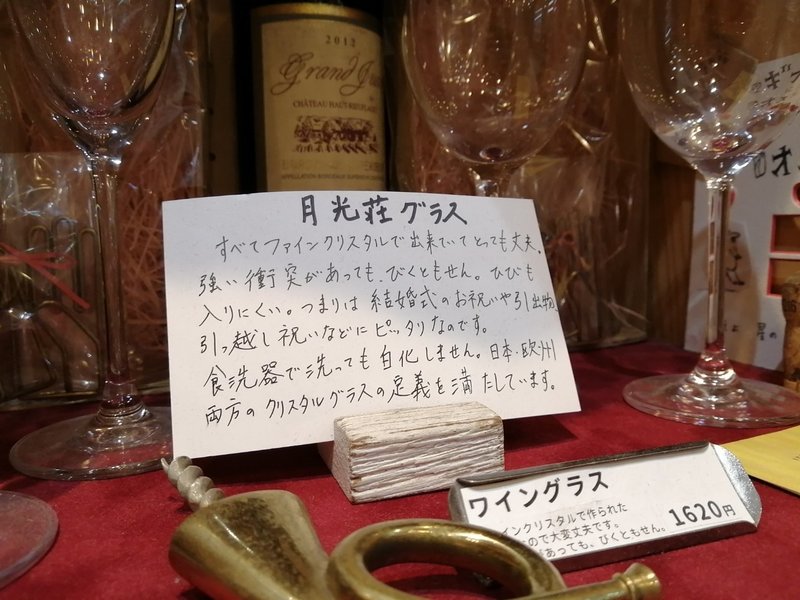 2012
Grand
CHÂTEAU HAUT-
APPELLATION BORDEAUX
月光荘グラス
すべてファインクリスタルで出来ていてとっても丈夫。
強い衝突があっても、びくともせん。ひびも
入りにくい。つまりは結婚式のお祝いや引出物、
引っ越し祝いなどにピッタリなのです。
食洗器で洗っても白化しません。日本・欧州
両方のクリスタルグラスの定義を満たしています。
ワイングラス
インクリスタルで作られた
ので大変丈夫です。
あっても、びくともせん。
1620円